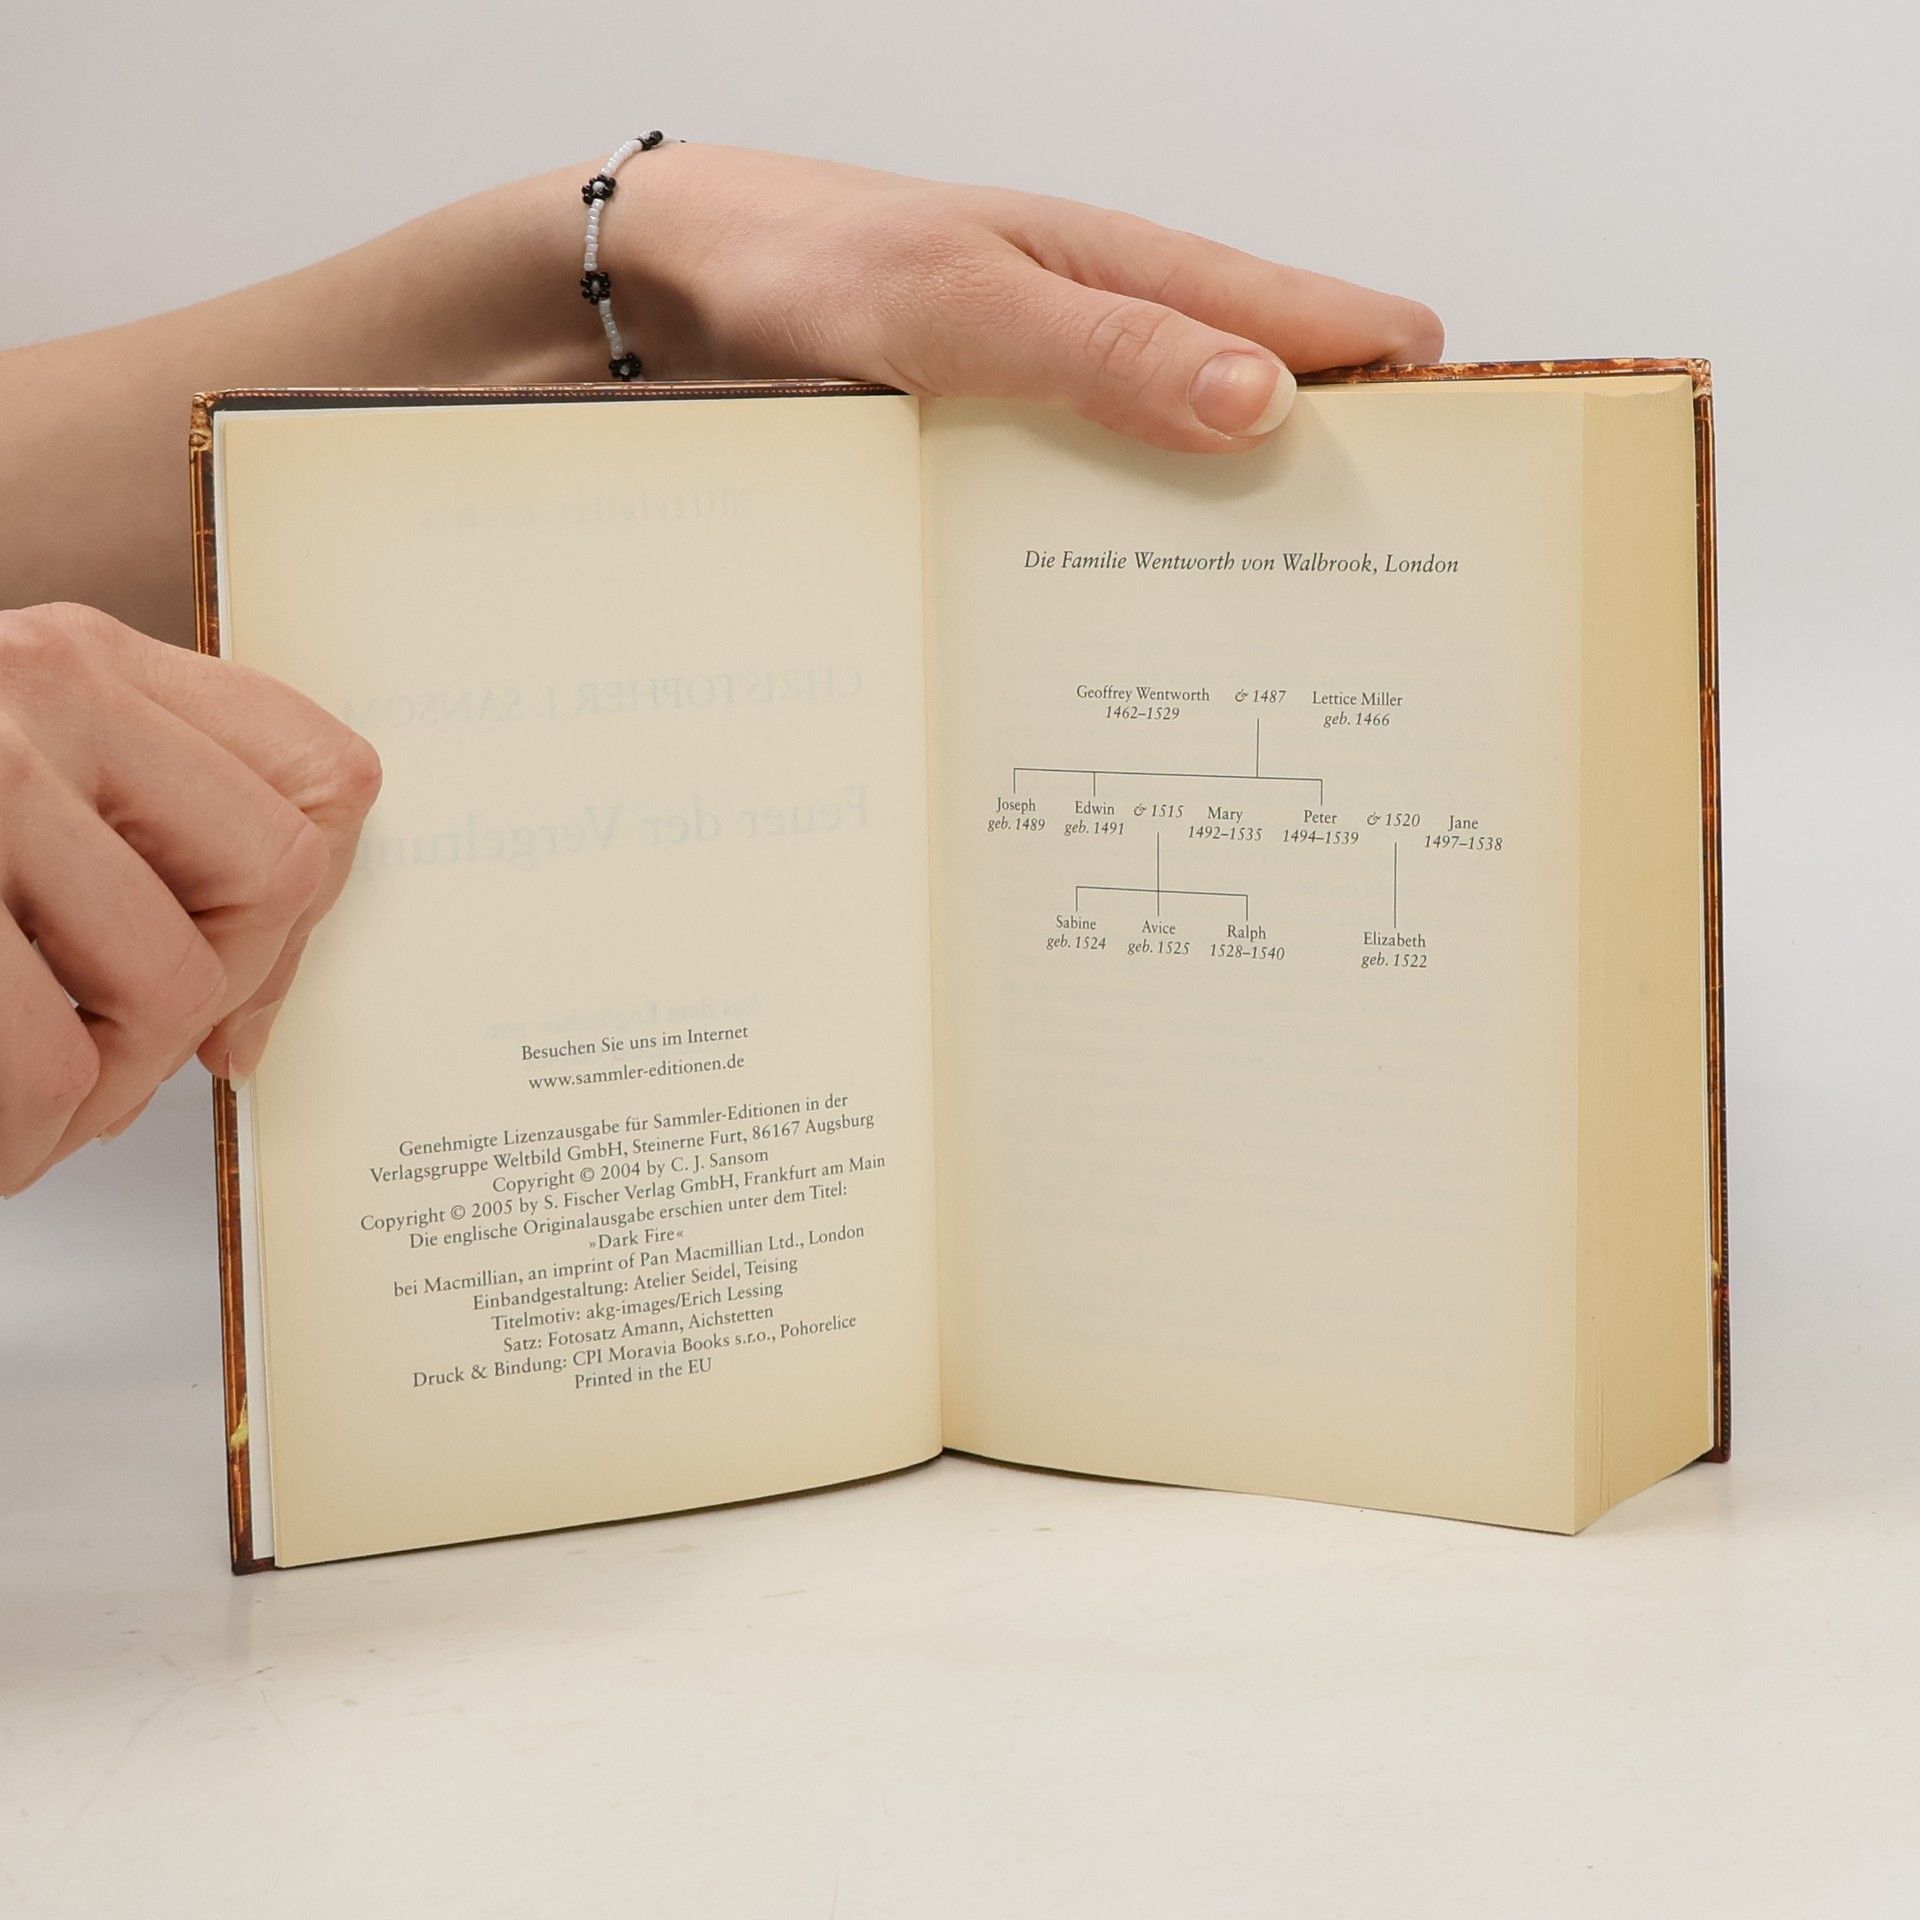 Besuchen Sie uns im Internet
www.sammler-editionen.de
Genehmigte Lizenzausgabe für Sammler-Editionen in der
Verlagsgruppe Weltbild GmbH, Steinerne Furt, 86167 Augsburg
Copyright © 2004 by C. J. Sansom
Copyright © 2005 by S. Fischer Verlag GmbH, Frankfurt am Main
Die englische Originalausgabe erschien unter dem Titel:
»Dark Fire«
bei Macmillian, an imprint of Pan Macmillian Ltd., London
Einbandgestaltung: Atelier Seidel, Teising
Titelmotiv: akg-images/Erich Lessing
Satz: Fotosatz Amann, Aichstetten
Druck & Bindung: CPI Moravia Books s.r.o., Pohorelice
Printed in the EU
Die Familie Wentworth von Walbrook, London
Geoffrey Wentworth & 1487 Lettice Miller
1462–1529 geb. 1466
Joseph Edwin & 1515 Mary Peter & 1520 Jane
geb. 1489 geb. 1491 1492–1535 1494–1539 1497–1538
Sabine Avice Ralph Elizabeth
geb. 1524 geb. 1525 1528–1540 geb. 1522